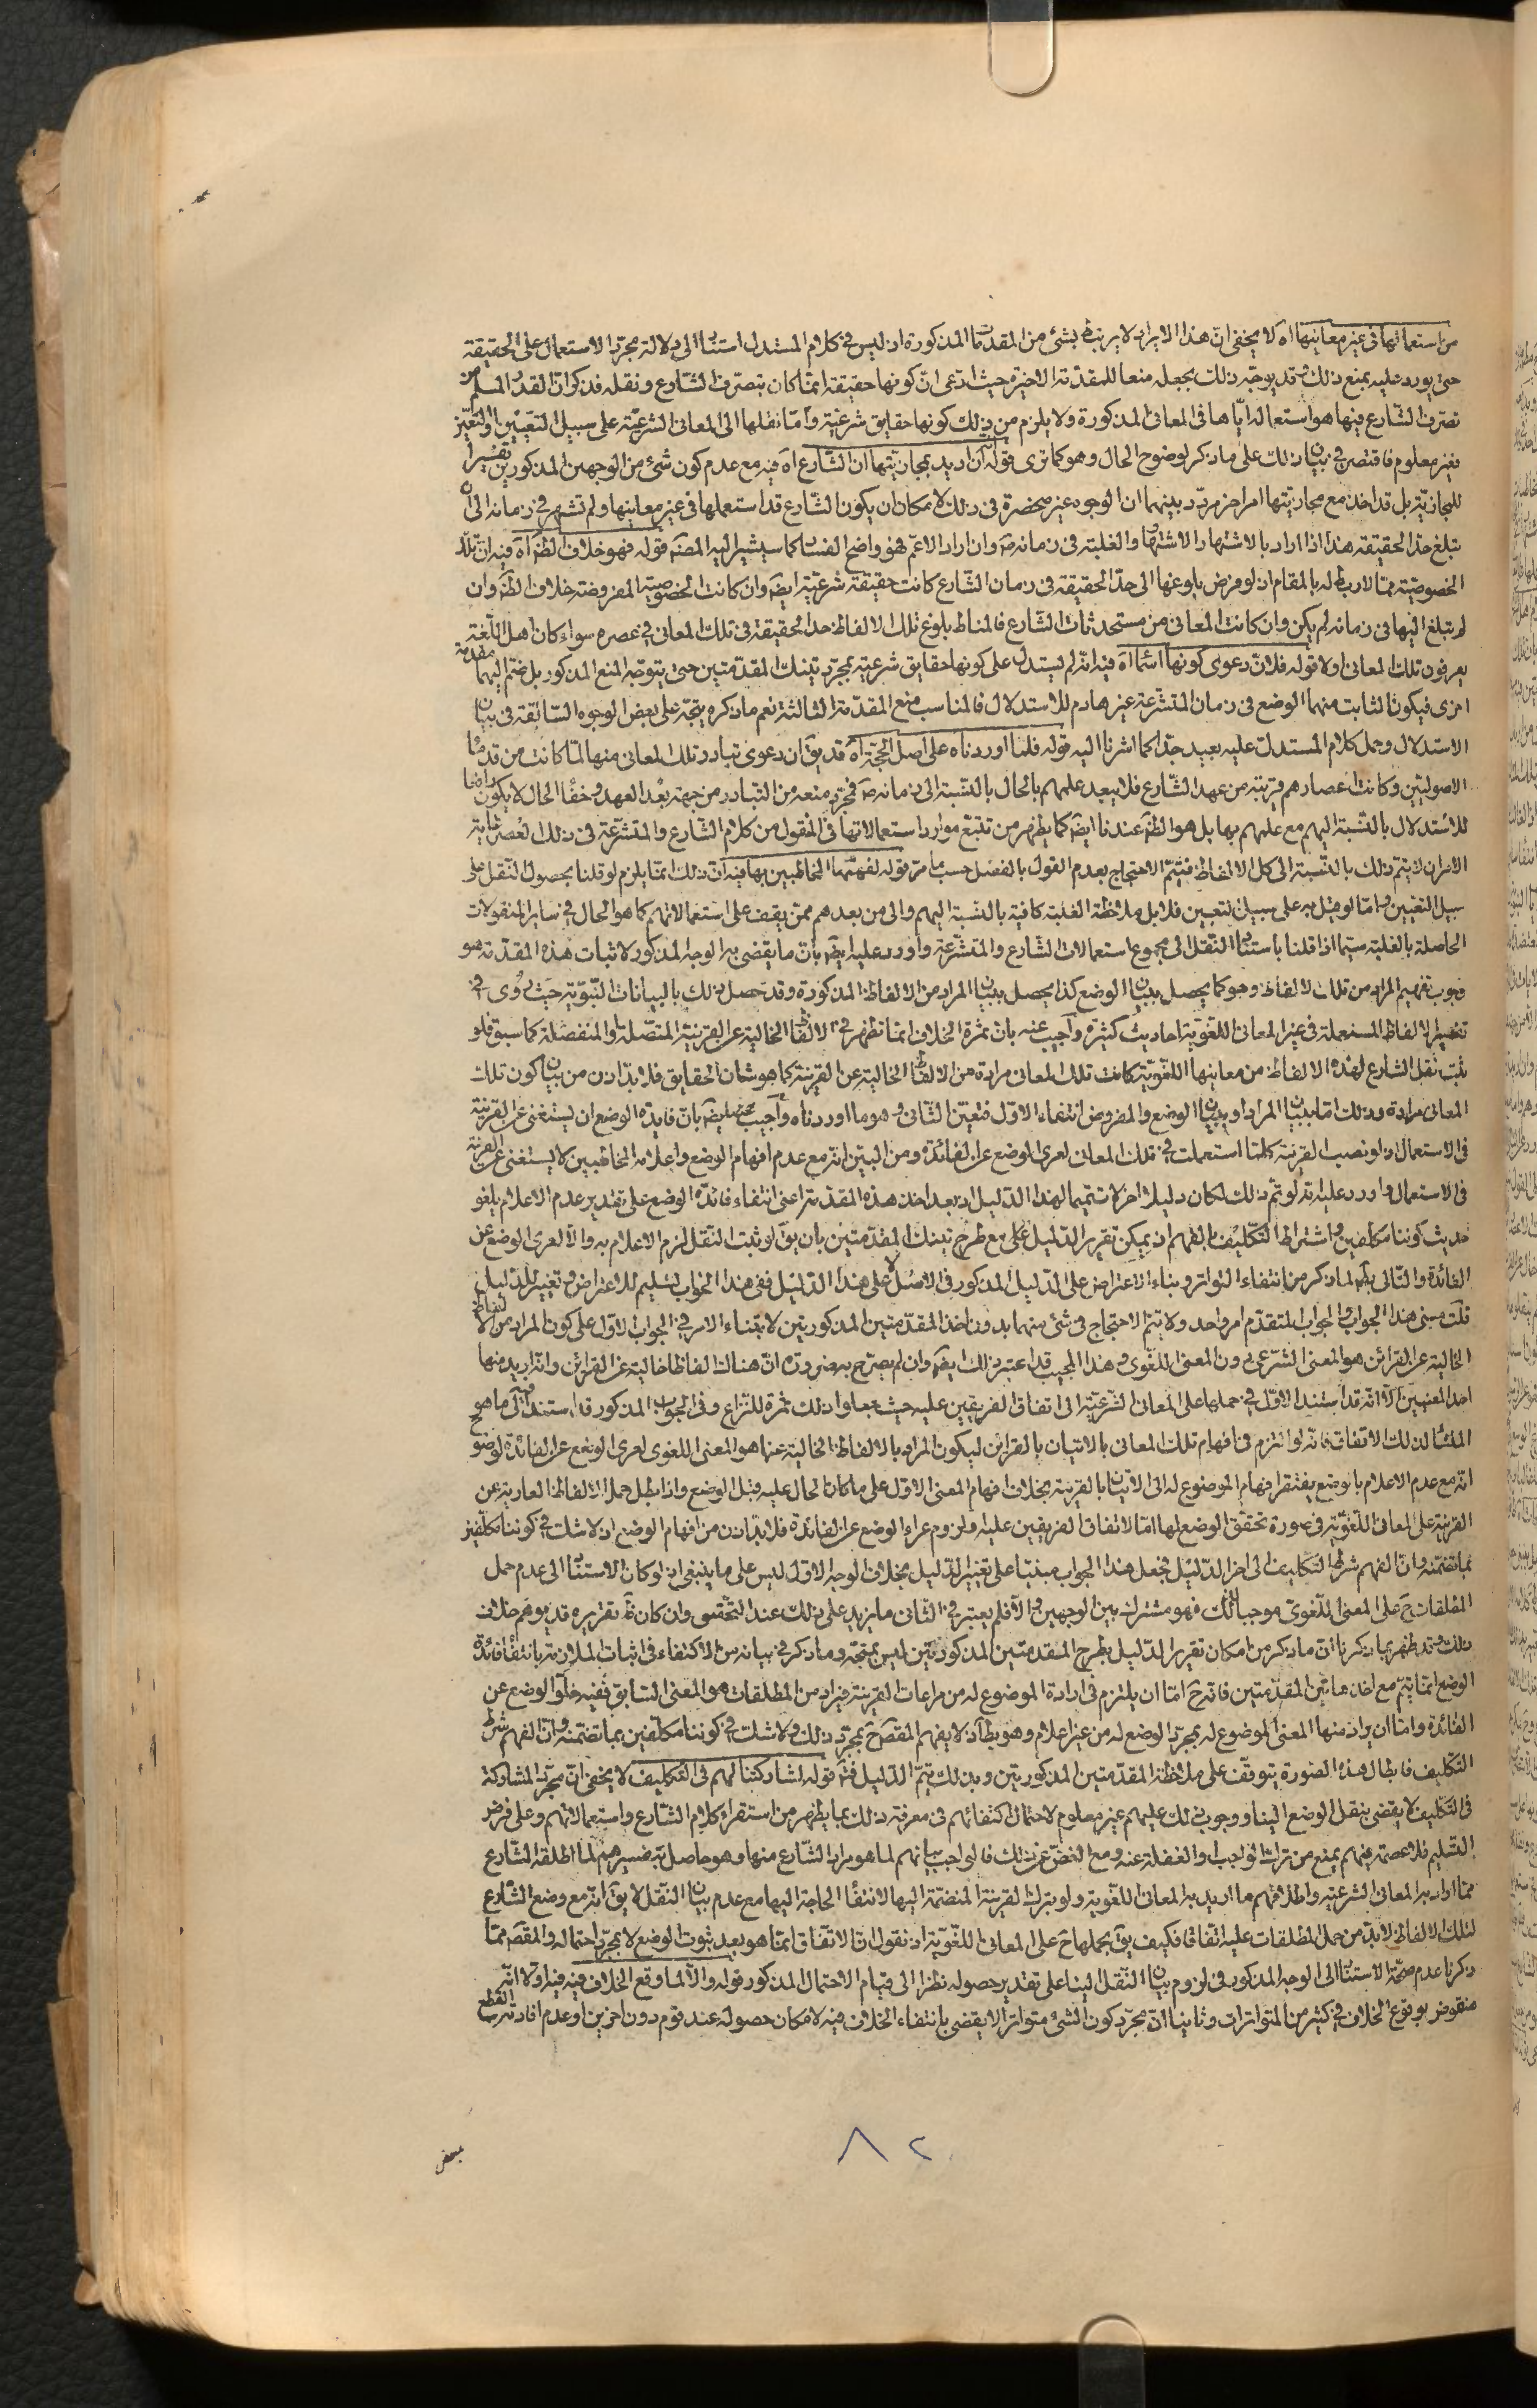 من استعمالها فى غير معانيها اه لا يخفى ان هذا الايراد لا يرتبط بشئ من المقدمات المذكورة اذ ليس فى كلام المستدل استناد الى دلالة مجرد الاستعمال على الحقيقة
حتى يورد عليه بمنع ذلك وقد يوجه ذلك بجعله منعا للمقدمة الاخيرة حيث ادعى ان كونها حقيقة انما كان بتصرف الشارع ونقله فذكر ان القدر المسلم من
تصرف الشارع فيها هو استعماله اياها فى المعانى المذكورة ولا يلزم من ذلك كونها حقايق شرعية واما نقلها الى المعانى الشرعية على سبيل التعيين او التعيّن
فغير معلوم فاقتصر فى بيان ذلك على ما ذكر لوضوح الحال وهو كما ترى قوله ان اريد بمجازيتها ان الشارع اه فيه مع عدم كون شئ من الوجهين المذكورين تفسيرا
للمجازية بل قد اخذ مع مجازيتها امر اخر مردد بينهما ان الوجوه غير منحصرة فى ذلك لامكان ان يكون الشارع قد استعملها فى غير معانيها ولم تشتهر فى زمانه الى ان
تبلغ حد الحقيقة هذا اذا اراد بالاشتهار الاشتهار والغلبة فى زمانه ص وان اراد الاعم فهو واضح الفساد كما سيشير اليه المصنف قوله فهو خلاف الظ اه فيه ان تلك
الخصوصية مما لا ربط له بالمقام اذ لو فرض بلوغها الى حد الحقيقة فى زمان الشارع كانت حقيقة شرعية ايضا وان كانت الخصوصية المفروضة خلاف الظ وان
لم تبلغ اليها فى زمانه لم يكن وان كانت المعانى من مستحدثات الشارع فالمناط بلوغ تلك الالفاظ حد الحقيقة فى تلك المعانى فى عصره سواء كان اهل اللغة
يعرفون تلك المعانى اولا قوله فلان دعوى كونها اسماء اه فيه انه لم يستدل على كونها حقايق شرعية بمجرد تينك المقدمتين حتى يتوجه المنع المذكور بل ضم اليهما مقدمة
اخرى فيكون الثابت منهما الوضع فى زمان المتشرعة غير هادم للاستدلال فالمناسب منع المقدمة الثالثة نعم ما ذكره يتجه على بعض الوجوه السابقة فى بيان
الاستدلال وحمل كلام المستدل عليه بعيد جدا كما اشرنا اليه قوله فلما اوردناه على اصل الحجة اه قد يق ان دعوى تبادر تلك المعانى منها لما كانت من قدماء
الاصوليين وكانت اعصارهم قريبة من عهد الشارع فلا يبعد علمهم بالحال بالنسبة الى زمانه ص فمجرد منعه من التبادر من جهة بعد العهد وخفاء الحال لا يكون رافعا
للاستدلال بالنسبة اليهم مع علمهم بها بل هو الظ عندنا ايضا كما يظهر من تتبع موارد استعمالاتها فى المنقول من كلام الشارع والمتشرعة فى ذلك العصر غاية
الامر ان لا يتم ذلك بالنسبة الى كل الالفاظ فيتم الاحتجاج بعدم القول بالفصل حسب ما مر قوله لفهمها المخاطبين بها فيه ان ذلك انما يلزم لو قلنا بحصول النقل على
سبيل التعيين واما لو قيل به على سبيل التعيين فلا بل ملاحظة الغلبة كافية بالنسبة اليهم والى من بعدهم ممن يقف على استعمالاتهم كما هو الحال فى ساير المنقولات
الحاصلة بالغلبة سيما اذا قلنا باستناد النقل الى مجموع استعمالات الشارع والمتشرعة واورد عليه ايضا بان ما يقضى به الوجه المذكور لاثبات هذه المقدمة هو
وجوب تفهيم المراد من تلك الالفاظ وهو كما يحصل ببيان الوضع كذا يحصل ببيان المراد من الالفاظ المذكورة وقد حصل ذلك بالبيانات النبوية حيث روى فى
تفسير الالفاظ المستعملة فى غير المعانى اللغوية احاديث كثيرة واجيب عنه بان ثمرة الخلاف انما تظهر فى الالفاظ الخالية عن القرينة المتصلة والمنفصلة كما سبق فلو
ثبت نقل الشارع لهذه الالفاظ من معانيها اللغوية كانت تلك المعانى مرادة من الالفاظ الخالية عن القرينة كما هو شان الحقايق فلا بد اذن من بيان كون تلك
المعانى مرادة وذلك اما ببيان المراد او ببيان الوضع والمفروض انتفاء الاول فتعين الثانى وهو ما اوردناه واجيب عنه ايضا بان فايدة الوضع ان يستغنى عن القرينة
فى الاستعمال اذ لو نصب القرينة كلما استعملت فى تلك المعانى لعرى الوضع عن الفائدة ومن البين انه مع عدم افهام الوضع واعلامه المخاطبين لا يستغنى عن القرينة
فى الاستعمال واورد عليه بانه لو تم ذلك لكان دليلا اخر لا تتميما لهذا الدليل اذ بعد اخذ هذه المقدمة اعنى انتفاء فائدة الوضع على تقدير عدم الاعلام يلغو
حديث كوننا مكلفين واشتراط التكليف بالفهم اذ يمكن تقرير الدليل على مع طرح تينك المقدمتين بان يق لو ثبت النقل لزم الاعلام به والا لعرى الوضع عن
الفائدة والتالى بط لما ذكر من انتفاء التواتر وبناء الاعتراض على الدليل المذكور فى الاصل لا على هذا الدليل ففى هذا الجواب تسليم للاعتراض وتغيير للدليل
قلت مبنى هذا الجواب والجواب المتقدم امر واحد ولا يتم الاحتجاج فى شئ منهما بدون اخذ المقدمتين المذكورتين لابتناء الامر فى الجواب الاول على كون المراد من الالفاظ
الخالية عن القرائن هو المعنى الشرعى دون المعنى اللغوى وهذا المجيب قد اعتبر ذلك ايضا وان لم يصرح به ضرورة ان هناك الفاظا خالية عن القرائن وانه اريد منها
احد المعنيين الا انه قد استند الاول فى حملها على المعانى الشرعية الى اتفاق الفريقين عليه حيث جعلوا ذلك ثمرة للنزاع وفى الجواب المذكور قد استند الى ما هو
المنشا لذلك الاتفاق فانه لو التزم فى افهام تلك المعانى بالاتيان بالقرائن ليكون المراد بالالفاظ الخالية عنها هو المعنى اللغوى لعرى الوضع عن الفائدة لوضوح
انه مع عدم الاعلام بالوضع يفتقر افهام الموضوع له الى الاتيان بالقرينة بخلاف افهام المعنى الاول على ما كان الحال عليه قبل الوضع واذا بطل حمل الالفاظ العارية عن
القرينة على المعانى اللغوية فى صورة تحقق الوضع لها اما لاتفاق الفريقين عليه او لزوم عراء الوضع عن الفائدة فلا بد اذن من افهام الوضع اذ لا شك فى كوننا مكلفين
بما تضمنه وان الفهم شرط التكليف الى اخر الدليل فجعل هذا الجواب مبنيا على تغيير الدليل بخلاف الوجه الاول ليس على ما ينبغى اذ لو كان الاستناد الى عدم حمل
المطلقات ح على المعنى اللغوى موجبا لذلك فهو مشترك بين الوجهين والا فلم يعتبر فى الثانى ما يزيد على ذلك عند التحقيق وان كان ظ تقريره قد يوهم خلاف
ذلك وقد ظهر بما ذكرنا ان ما ذكر من امكان تقرير الدليل بطرح المقدمتين المذكورتين ليس بمتجه وما ذكر فى بيانه من الاكتفاء فى اثبات الملازمة بانتفاء فائدة
الوضع انما يتم مع اخذ هاتين المقدمتين فانه ح اما ان يلتزم فى ارادة الموضوع له من مراعات القرينة فيراد من المطلقات هو المعنى السابق ففيه خلو الوضع عن
الفائدة واما ان يراد منها المعنى الموضوع له بمجرد الوضع له من غير اعلام وهو بط اذ لا يفهم المقصود ح بمجرد ذلك ولا شك فى كوننا مكلفين بما تضمنته وان الفهم شرط
التكليف فابطال هذه الصورة يتوقف على ملاحظة المقدمتين المذكورتين وبذلك يتم الدليل فتم قوله لمشاركتنا لهم فى التكليف لا يخفى ان مجرد المشاركة
فى التكليف لا يقضى بنقل الوضع الينا ووجوب ذلك عليهم غير معلوم لاحتمال اكتفائهم فى معرفة ذلك بما يظهر من استقراء كلام الشارع واستعمالاتهم وعلى فرض
التسليم فلا عصمة فيهم يمنع من ترك الواجب او الغفلة عنه ومع الغض عن ذلك فالواجب بيانهم لما هو مراد الشارع منها وهو حاصل بتفسيرهم لما اطلقه الشارع
مما اراد به المعانى الشرعية واطلاقهم ما اريد به المعانى اللغوية ولو بترك القرينة المنضمة اليها لانتفاء الحاجة اليها مع عدم بيان النقل لا يق انه مع وضع الشارع
لتلك الالفاظ لا بد من حمل المطلقات عليه اتفاقا فكيف يق بحملها ح على المعانى اللغوية اذ نقول ان الاتفاق انما هو بعد ثبوت الوضع لا بمجرد احتماله والمقصود مما
ذكرنا عدم صحة الاستناد الى الوجه المذكور فى لزوم بيان النقل الينا على تقدير حصوله نظرا الى قيام الاحتمال المذكور قوله والا لما وقع الخلاف فيه فيه اولا انه
منقوض بوقوع الخلاف فى كثير من المتواترات وثانيا ان مجرد كون الشئ متواترا لا يقضى بانتفاء الخلاف فيه لامكان حصوله عند قوم دون اخرين او عدم افادته القطع
٨٢